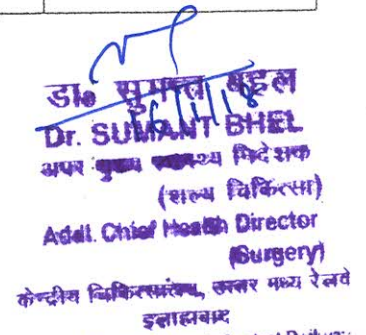 डा० सुमन्त बहल
16/1/18
Dr. SUMANT BHEL
अपर मुख्य स्वास्थ्य निदेशक
(शल्य चिकित्सा)
Addl. Chief Health Director
(Surgery)
केन्द्रीय चिकित्सालय, उत्तर मध्य रेलवे
इलाहाबाद
Railway